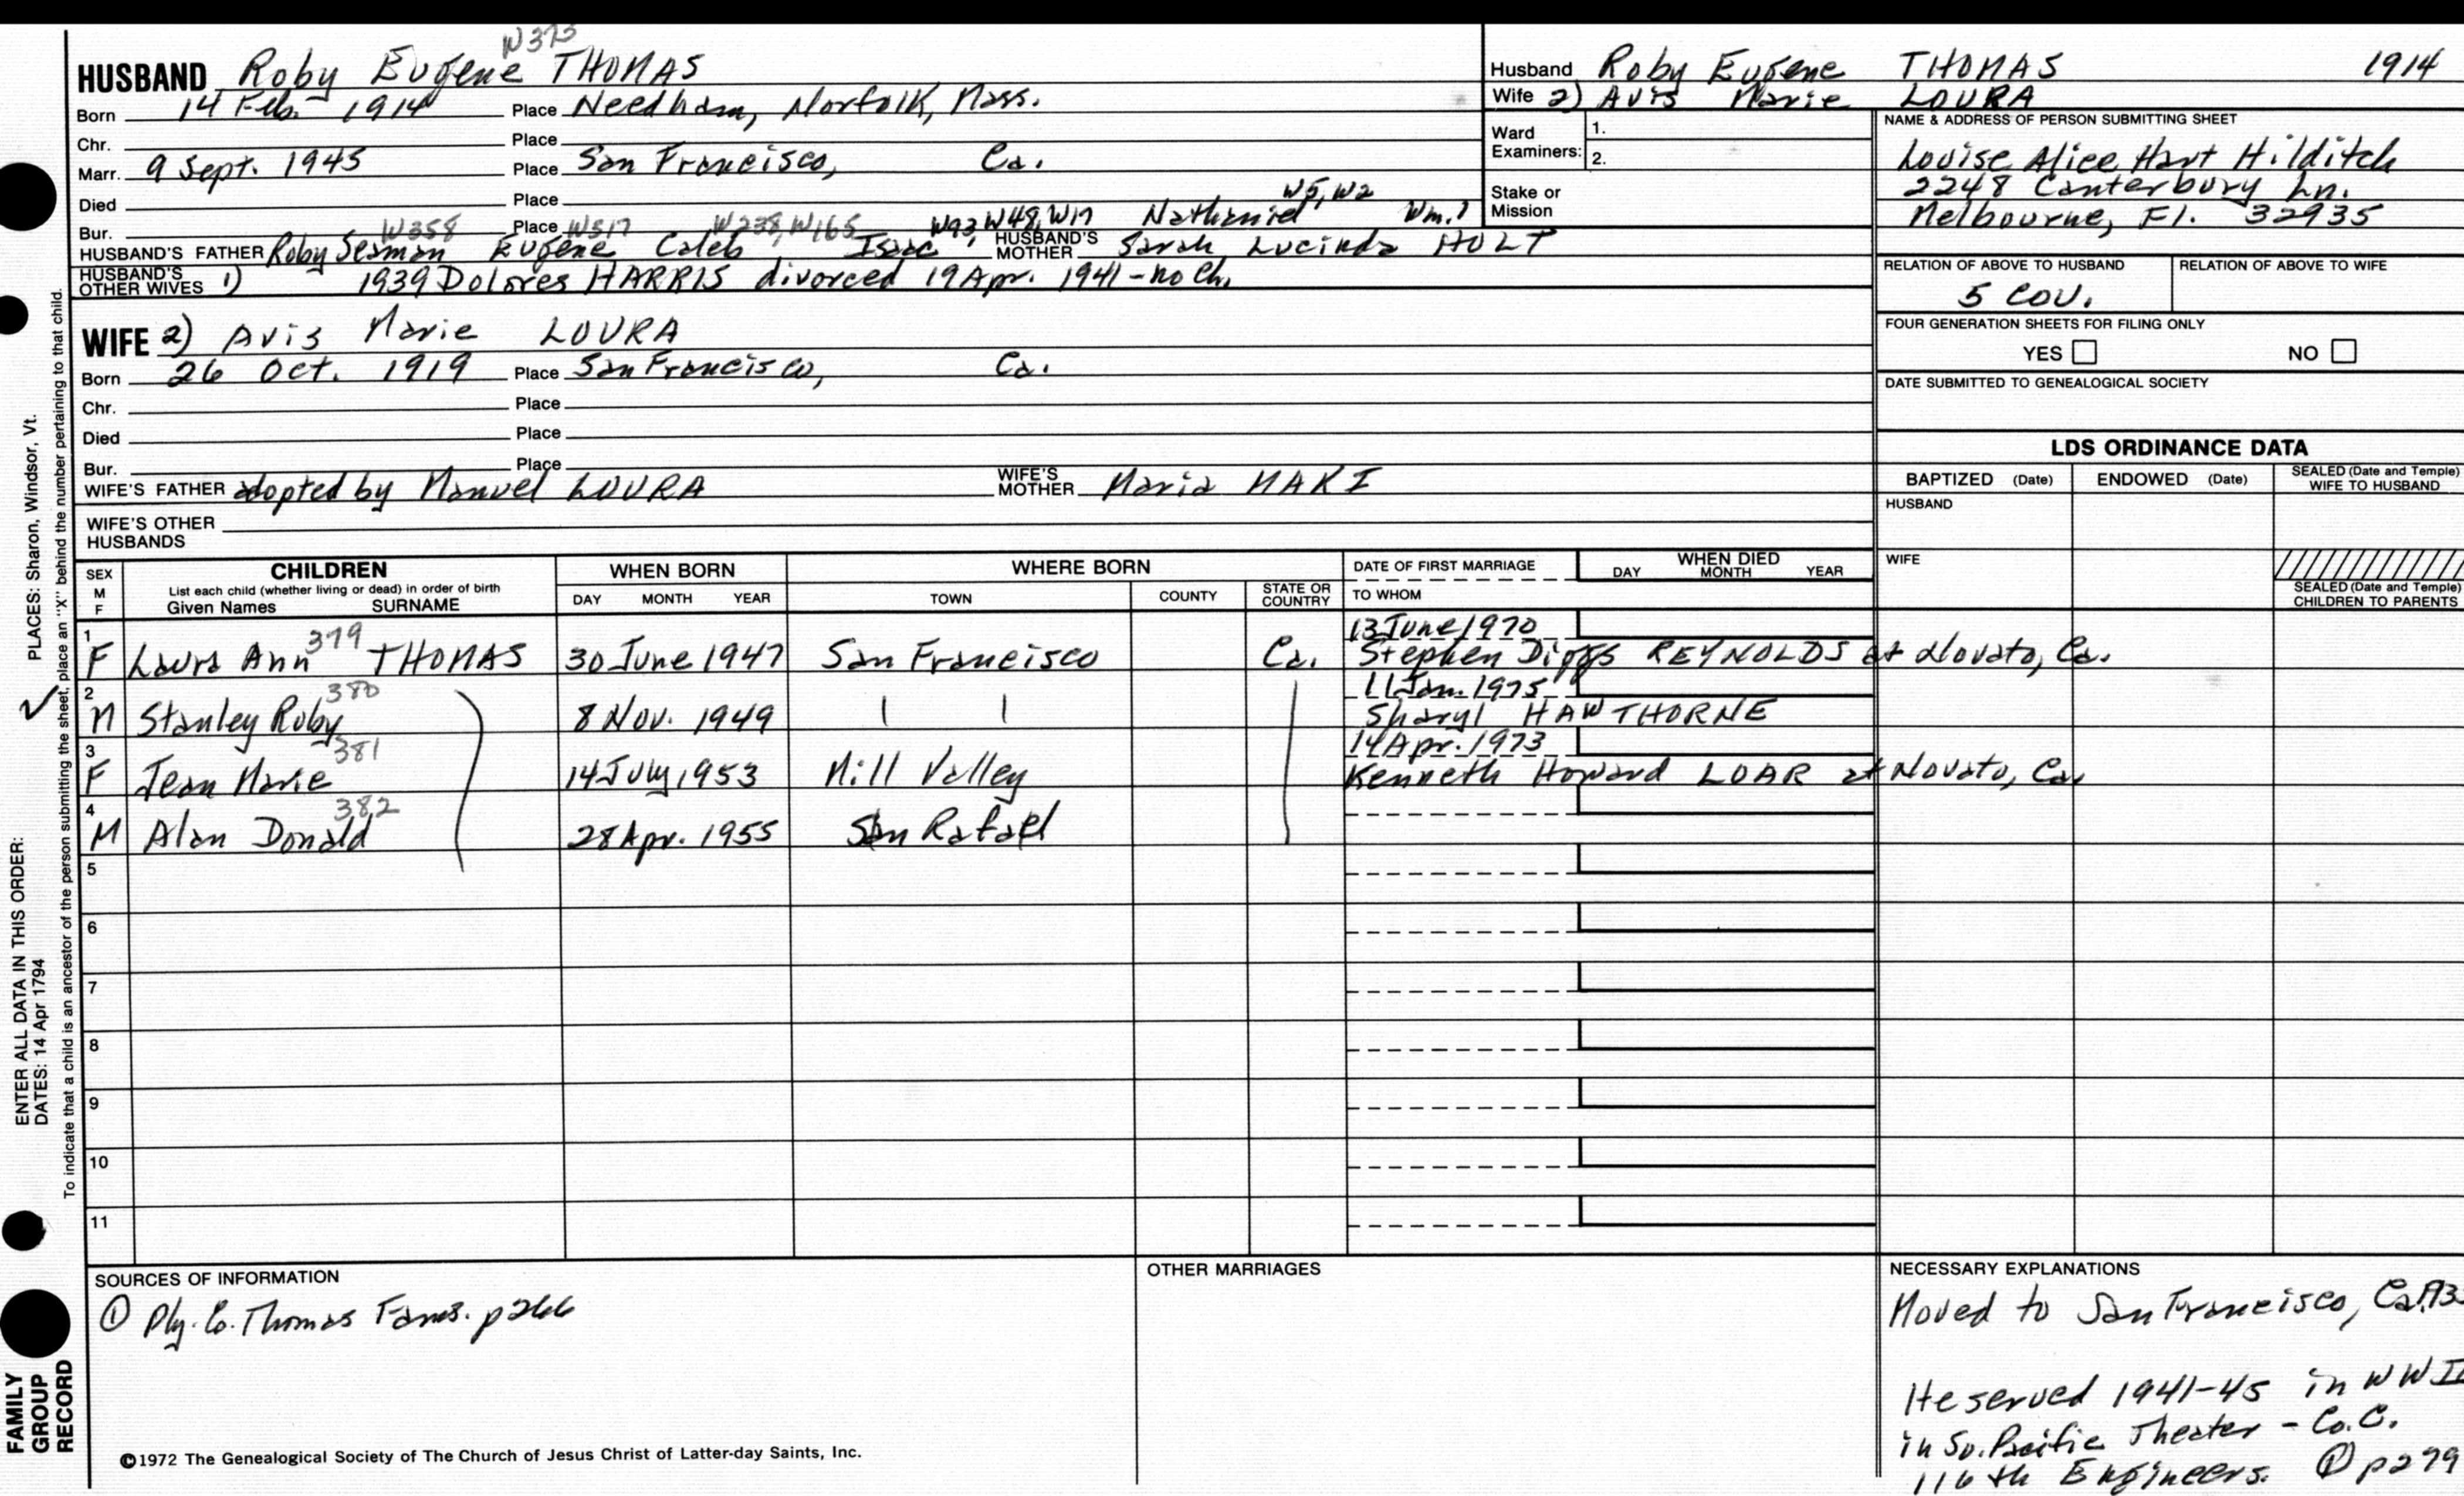 W373
HUSBAND Roby Eugene THOMAS
Born 14 Feb. 1914 Place Needham, Norfolk, Mass.
Chr. Place
Marr. 9 Sept. 1945 Place San Francisco, Ca.
Died Place W5, W2
Bur. W358 Place W517 W238, W165 W93 W48, W17 Nathaniel Wm.1
HUSBAND'S FATHER Roby Seaman Eugene Caleb Isaac, HUSBAND'S MOTHER Sarah Lucinda HOLT
HUSBAND'S OTHER WIVES 1) 1939 Dolores HARRIS divorced 19 Apr. 1941 - no Ch.
WIFE 2) Avis Marie LOURA
Born 26 Oct. 1919 Place San Francisco, Ca.
Chr. Place
Died Place
Bur. Place
WIFE'S FATHER adopted by Manuel LOURA WIFE'S MOTHER Maria MAKI
WIFE'S OTHER HUSBANDS
Husband Roby Eugene THOMAS 1914
Wife 2) Avis Marie LOURA
Ward Examiners: 1.
2.
Stake or Mission
NAME & ADDRESS OF PERSON SUBMITTING SHEET
Louise Alice Hart Hilditch
2248 Canterbury Ln.
Melbourne, Fl. 32935
RELATION OF ABOVE TO HUSBAND RELATION OF ABOVE TO WIFE
5 cou.
FOUR GENERATION SHEETS FOR FILING ONLY
YES NO
DATE SUBMITTED TO GENEALOGICAL SOCIETY
LDS ORDINANCE DATA
BAPTIZED (Date) ENDOWED (Date) SEALED (Date and Temple) WIFE TO HUSBAND
HUSBAND
WIFE
SEALED (Date and Temple) CHILDREN TO PARENTS
SEX M F
CHILDREN
List each child (whether living or dead) in order of birth
Given Names SURNAME
WHEN BORN
DAY MONTH YEAR
WHERE BORN
TOWN COUNTY STATE OR COUNTRY
DATE OF FIRST MARRIAGE
TO WHOM
WHEN DIED
DAY MONTH YEAR
1 379 13 June 1970
F Laura Ann THOMAS 30 June 1947 San Francisco Ca. Stephen Diggs REYNOLDS at Novato, Ca.
2 380 11 Jan. 1975
M Stanley Roby 8 Nov. 1949 | | Sharyl HAWTHORNE
3 381 14 Apr. 1973
F Jean Marie 14 July 1953 Mill Valley Kenneth Howard LOAR at Novato, Ca.
4 382
M Alan Donald 28 Apr. 1955 San Rafael
5
6
7
8
9
10
11
SOURCES OF INFORMATION
① Ply. Co. Thomas Fams. p266
OTHER MARRIAGES
NECESSARY EXPLANATIONS
Moved to San Francisco, Ca.
He served 1941-45 in WWII
in So. Pacific Theater - Co. C.
116th Engineers. ① p279
©1972 The Genealogical Society of The Church of Jesus Christ of Latter-day Saints, Inc.
FAMILY GROUP RECORD
ENTER ALL DATA IN THIS ORDER:
DATES: 14 Apr 1794 PLACES: Sharon, Windsor, Vt.
To indicate that a child is an ancestor of the person submitting the sheet, place an "X" behind the number pertaining to that child.